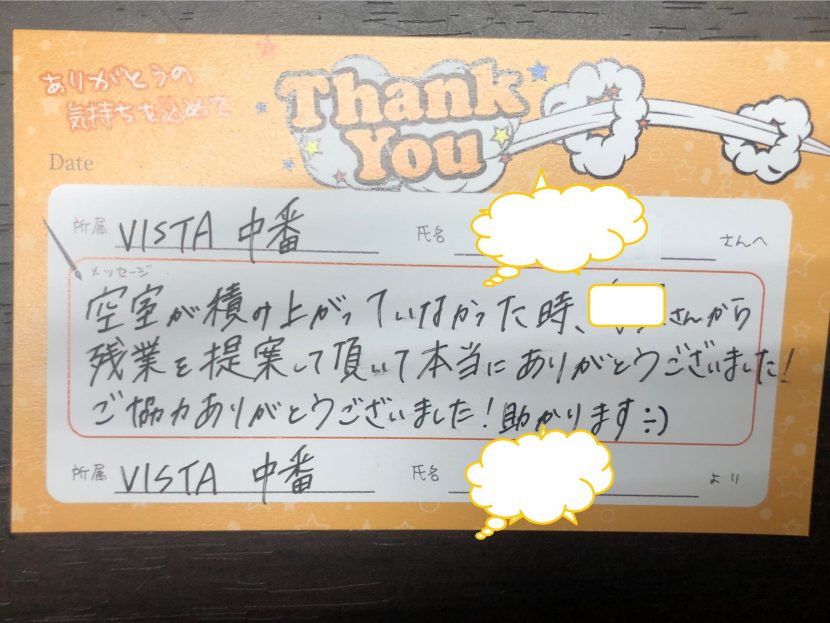 ありがとうの
気持ちを込めて
Thank
You
Date
所属 VISTA 中番 氏名 さんへ
メッセージ
空室が積み上がっていなかった時、さんから
残業を提案して頂いて本当にありがとうございました!
ご協力ありがとうございました!助かります:)
所属 VISTA 中番 氏名 より